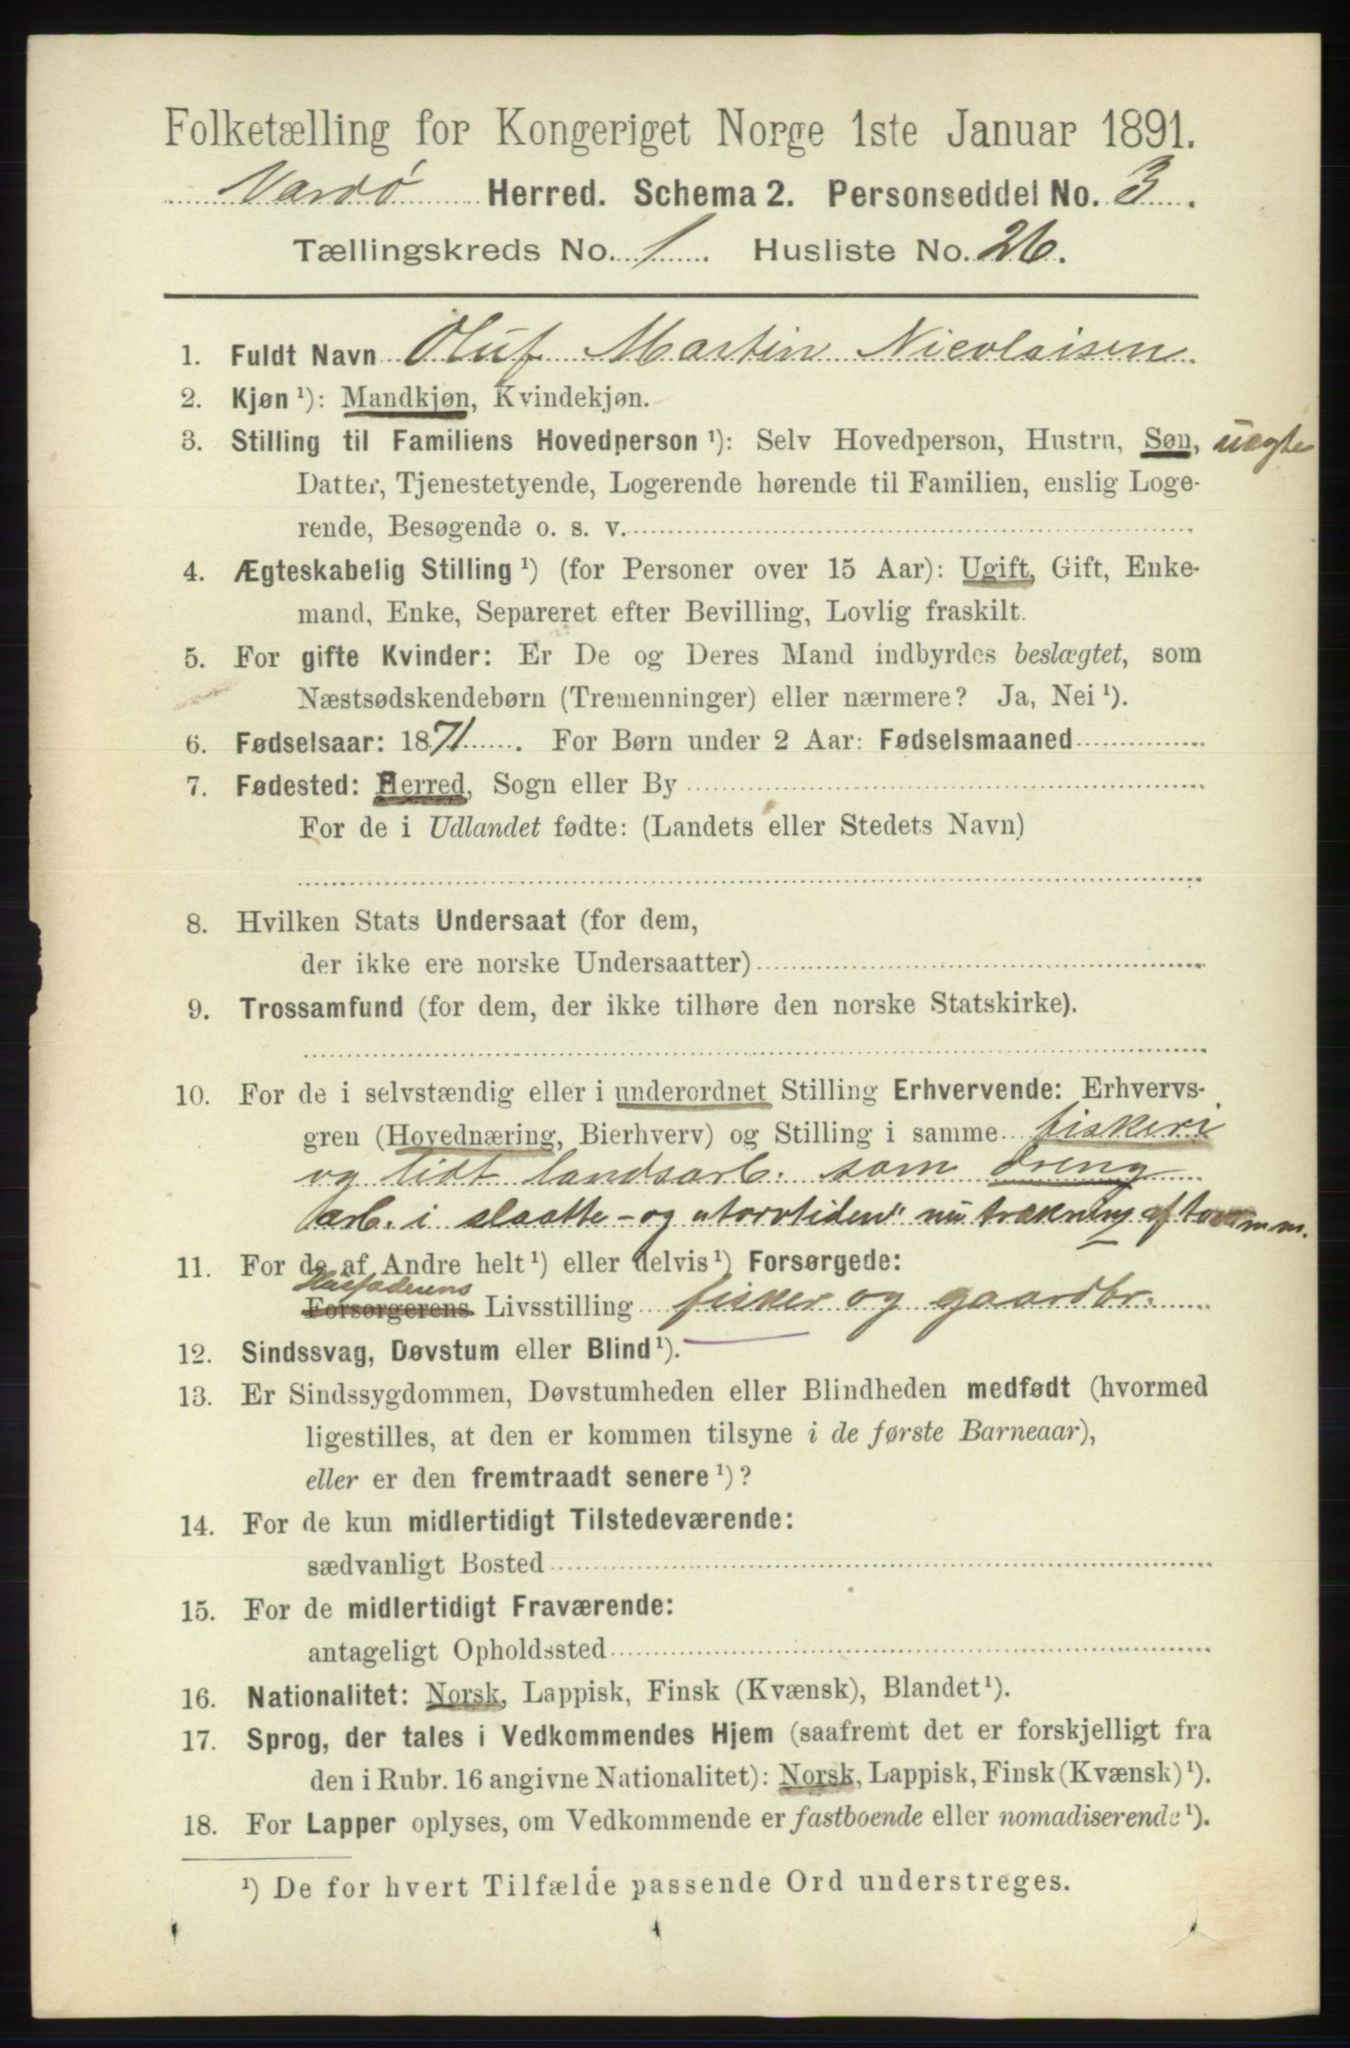 Folketælling for Kongeriget Norge 1ste Januar 1891.
Vardø Herred. Schema 2. Personseddel No. 3.
Tællingskreds No. 1. Husliste No. 26.
1. Fuldt Navn Oluf Martin Nicolaisen.
2. Kjøn ¹): Mandkjøn, Kvindekjøn.
3. Stilling til Familiens Hovedperson ¹): Selv Hovedperson, Hustru, Søn, uægte
Datter, Tjenestetyende, Logerende hørende til Familien, enslig Loge-
rende, Besøgende o. s. v.
4. Ægteskabelig Stilling ¹) (for Personer over 15 Aar): Ugift, Gift, Enke-
mand, Enke, Separeret efter Bevilling, Lovlig fraskilt.
5. For gifte Kvinder: Er De og Deres Mand indbyrdes beslægtet, som
Næstsødskendebørn (Tremenninger) eller nærmere? Ja, Nei ¹).
6. Fødselsaar: 1871. For Børn under 2 Aar: Fødselsmaaned
7. Fødested: Herred, Sogn eller By
For de i Udlandet fødte: (Landets eller Stedets Navn)
8. Hvilken Stats Undersaat (for dem,
der ikke ere norske Undersaatter)
9. Trossamfund (for dem, der ikke tilhøre den norske Statskirke).
10. For de i selvstændig eller i underordnet Stilling Erhvervende: Erhvervs-
gren (Hovednæring, Bierhverv) og Stilling i samme fiskeri
og lidt landsarb. som dreng
arb. i slaatte- og "torvtiden" nu trækning af tømm.
11. For de af Andre helt ¹) eller delvis ¹) Forsørgede:
Husfaderens
Forsørgerens Livsstilling fisker og gaardbr.
12. Sindssvag, Døvstum eller Blind ¹).
13. Er Sindssygdommen, Døvstumheden eller Blindheden medfødt (hvormed
ligestilles, at den er kommen tilsyne i de første Barneaar),
eller er den fremtraadt senere ¹)?
14. For de kun midlertidigt Tilstedeværende:
sædvanligt Bosted
15. For de midlertidigt Fraværende:
antageligt Opholdssted
16. Nationalitet: Norsk, Lappisk, Finsk (Kvænsk), Blandet ¹).
17. Sprog, der tales i Vedkommendes Hjem (saafremt det er forskjelligt fra
den i Rubr. 16 angivne Nationalitet): Norsk, Lappisk, Finsk (Kvænsk) ¹).
18. For Lapper oplyses, om Vedkommende er fastboende eller nomadiserende ¹).
¹) De for hvert Tilfælde passende Ord understreges.